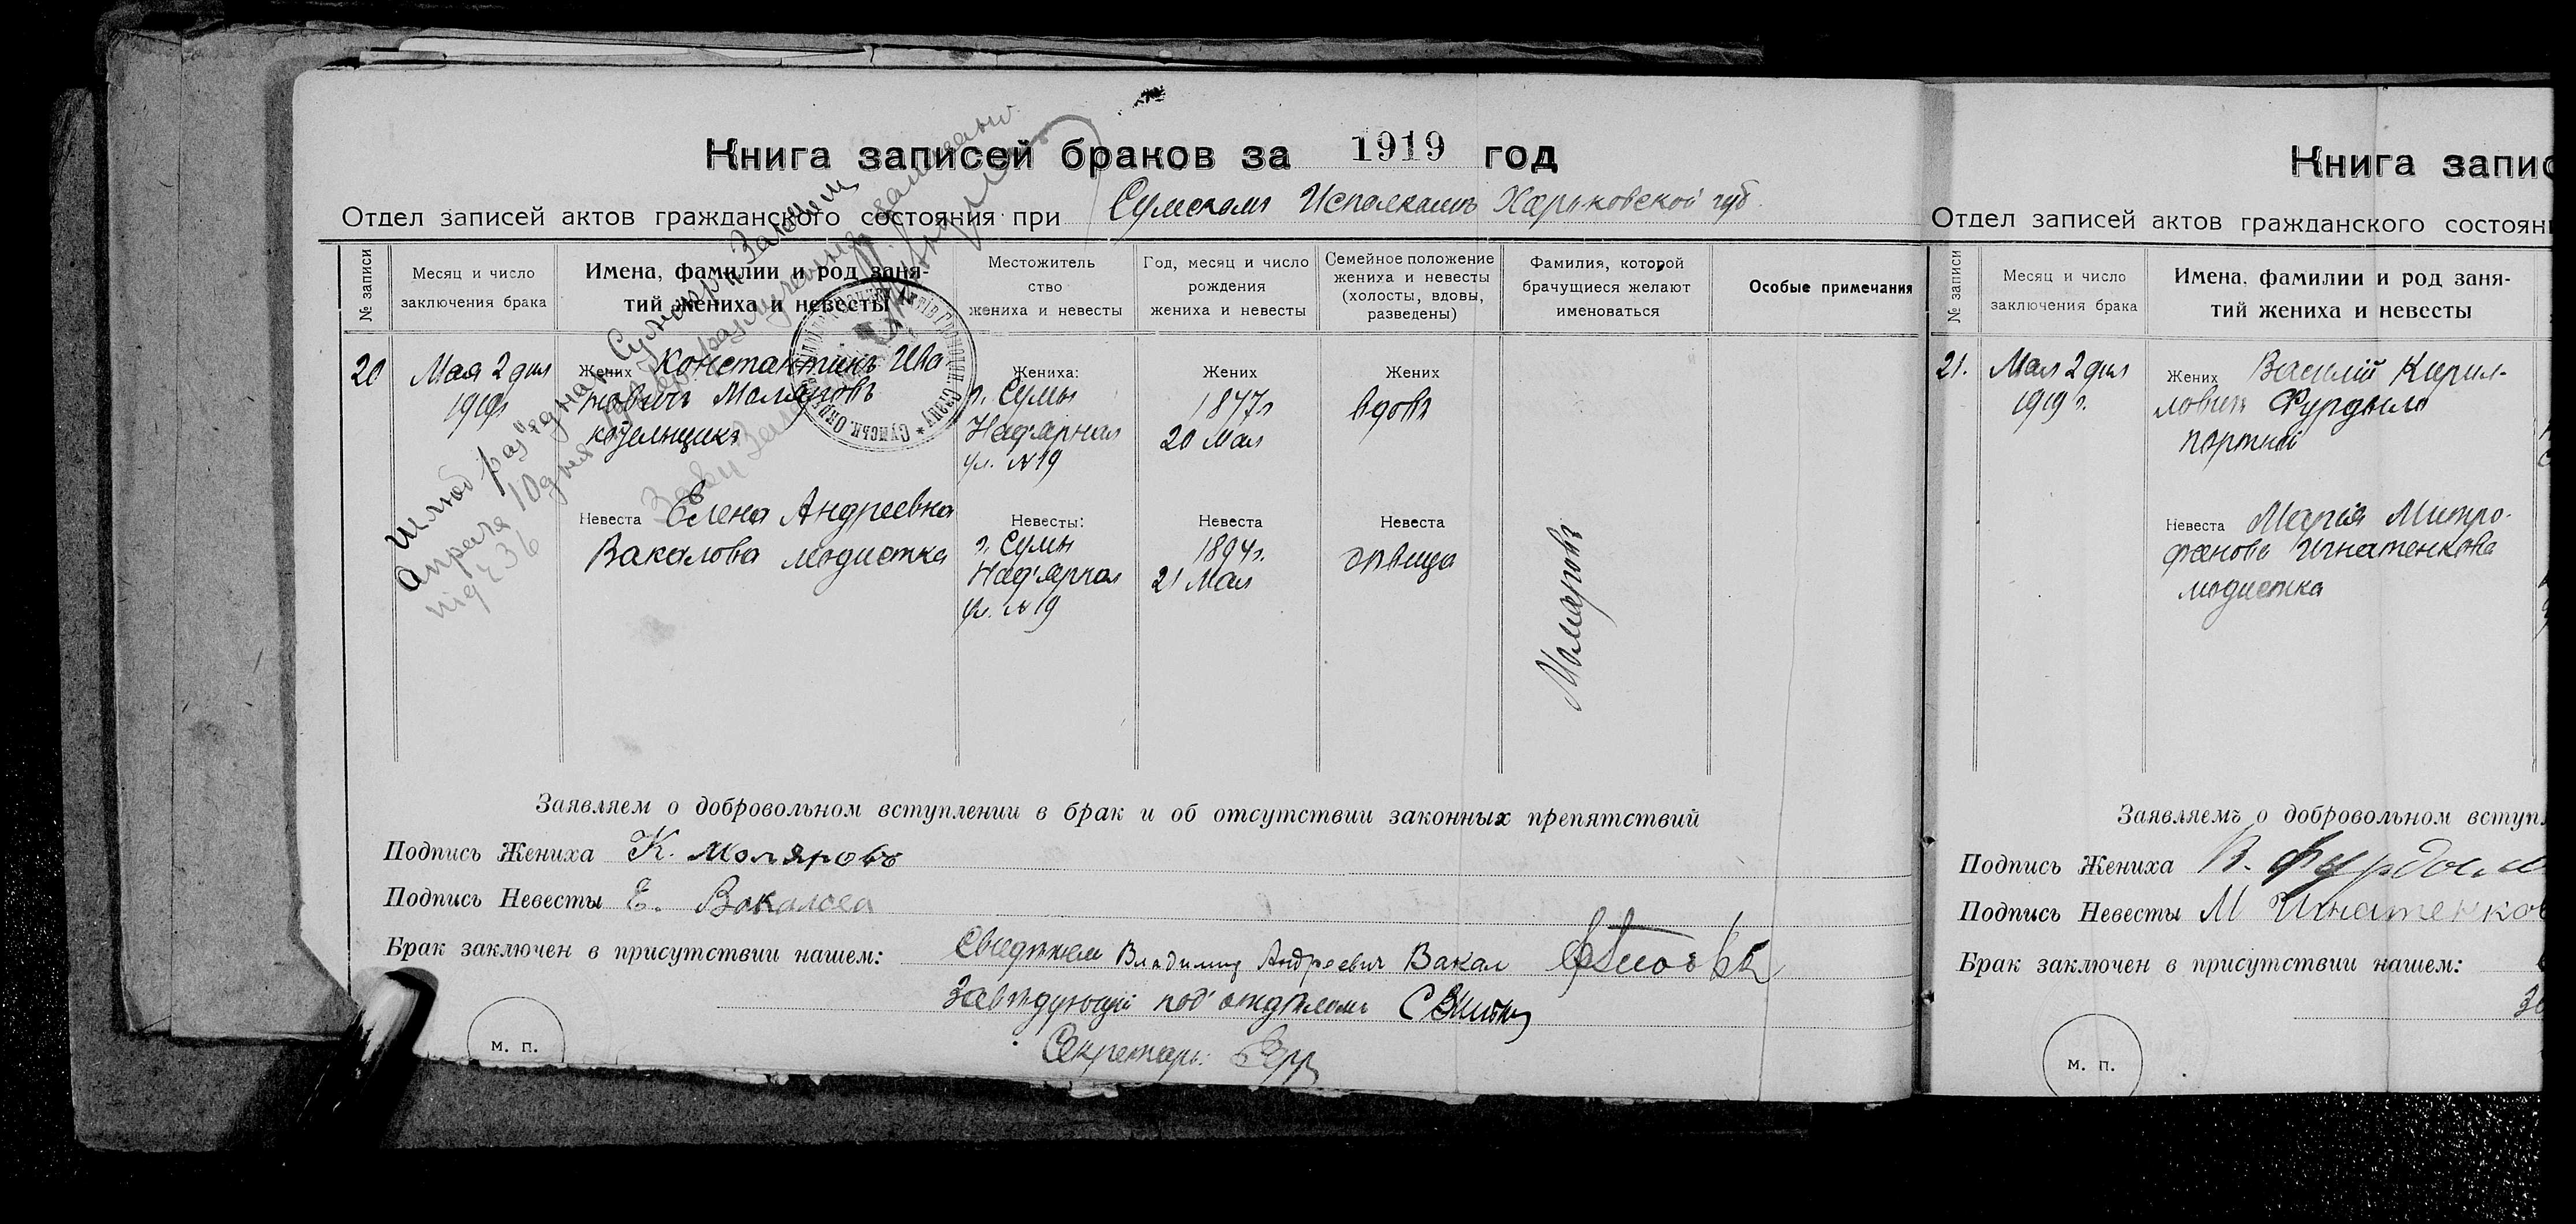 Книга записей браков за 1919 год
Отдел записей актов гражданского состояния при Сумскомъ Исполкомъ Харьковской губ.
№ записи
Месяц и число заключения брака
Имена, фамилии и род заня-
тий жениха и невесты
Местожитель
ство
жениха и невесты
Год, месяц и число
рождения
жениха и невесты
Семейное положение
жениха и невесты
(холосты, вдовы,
разведены)
Фамилия, которой
брачущиеся желают
именоваться
Особые примечания
20
Мая 2 дня
1919г
Жених Константинъ Ива
новичъ Моляровъ
Жениха:
г. Сумы
ул. №19
Жених
1847г
20 Мая
Жених
вдовъ
Невеста Елена Андреевна
Вакалова модистка
Невесты:
г. Сумы
ул. №19
Невеста
1894г.
21 Мая
Невеста
дѣвица
Моляровъ
Заявляем о добровольном вступлении в брак и об отсутствии законных препятствий
Подпись Жениха К. Моляровъ
Подпись Невесты Е. Вакалова
Брак заключен в присутствии нашем: Владимиръ Андреевич Вакал
Завѣдующій под'отдѣломъ
Секретарь:
м. п.
Книга запис
Отдел записей актов гражданского состоян
№ записи
Месяц и число
заключения брака
Имена, фамилии и род заня-
тий жениха и невесты
21.
Мая 2 дня
1919 г.
Жених Василій Кирил-
ловичъ Фурдыло
портной
Невеста Марія Митро-
фанова Игнатенкова
модистка
Заявляемъ о добровольном вступл
Подпись Жениха В.
Подпись Невесты М Игнатенков
Брак заключен в присутствии нашем:
м. п.